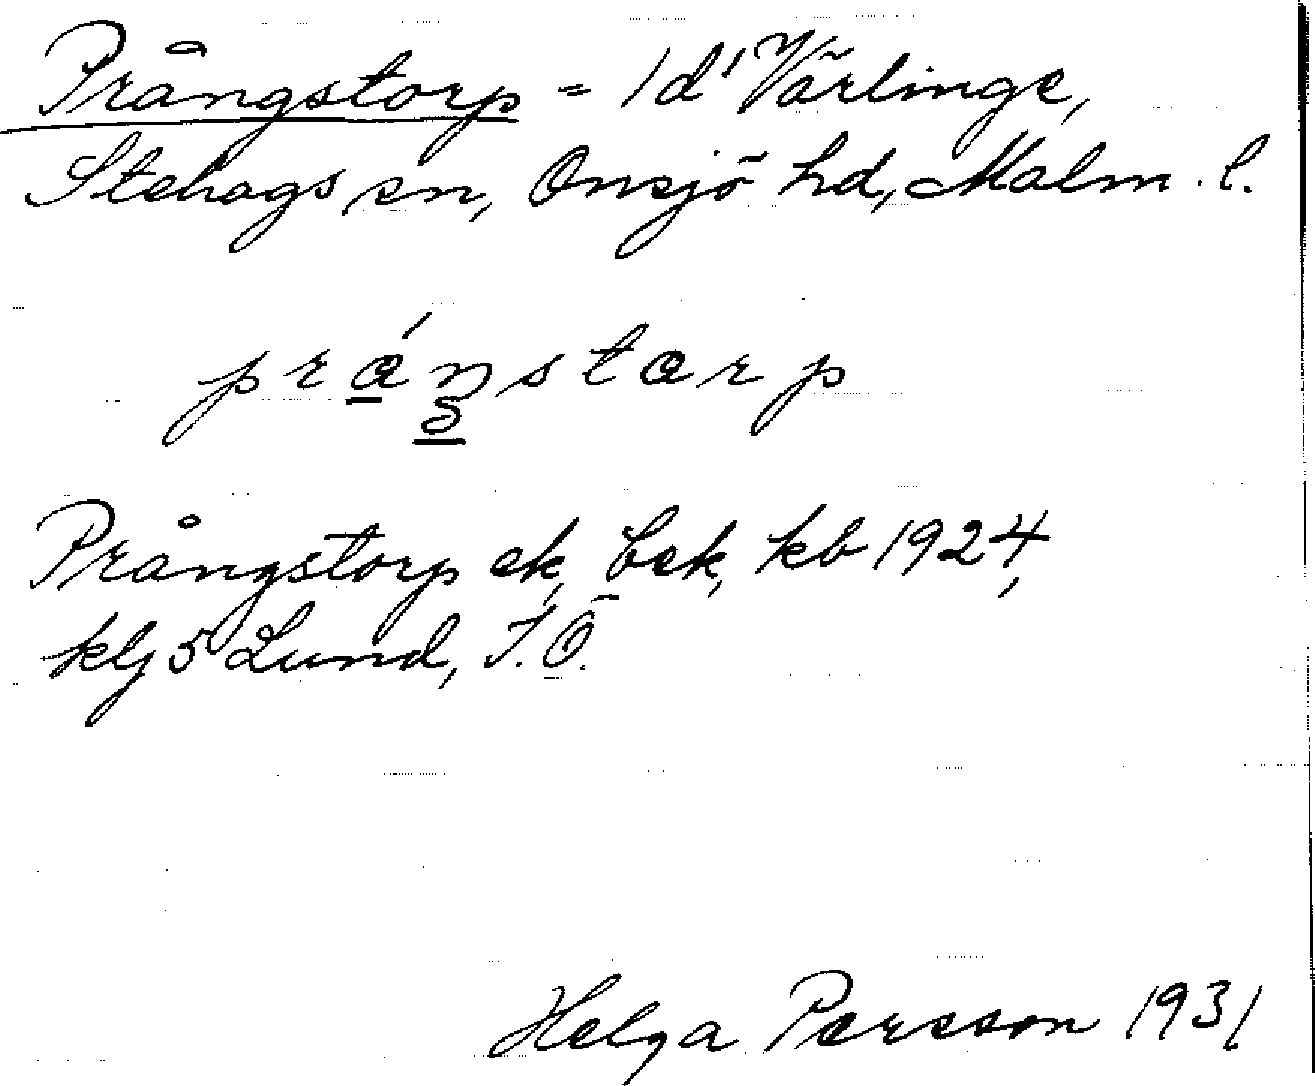 Prångstorp = 1 d' Värlinge,
Stehags sn, Onsjö hd, Malm. l.
prá̱ŋstarp
5
Prångstorp ek, bek, kb 1924,
klj 5 Lund, F.Ö.
Helga Persson 1931